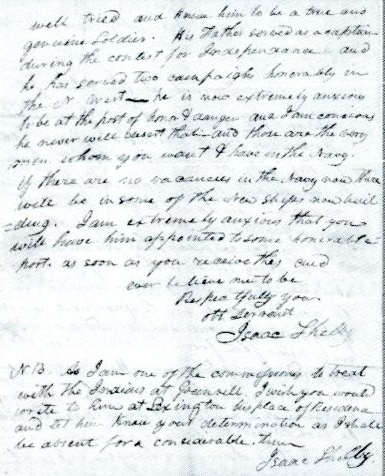 well tried and knew him to be a true and
genuine Soldier. His Father served as a captain
during the contest for Independance and
he has served two campaighs honorably in
the N West — he is now extremely anxious
to be at the post of honor & danger and I am conscious
he never will desert that — and those are the very
men whom you want & have in the Navy.
if there are no vacancies in the Navy now there
will be in some of the New ships now buil
=ding. I am extremely anxious that you
will have him appointed to some honorable
port. as soon as you receive this and
ever believe me to be
Respectfully your
obt Servant
Isaac Shelby
N B. As I am one of the commissioners to treat
with the Indians at Greenvill I wish you would
write to him at Lexington his place of
and let him know your determination as I shall
be absent for a considerable time
Isaac Shelby